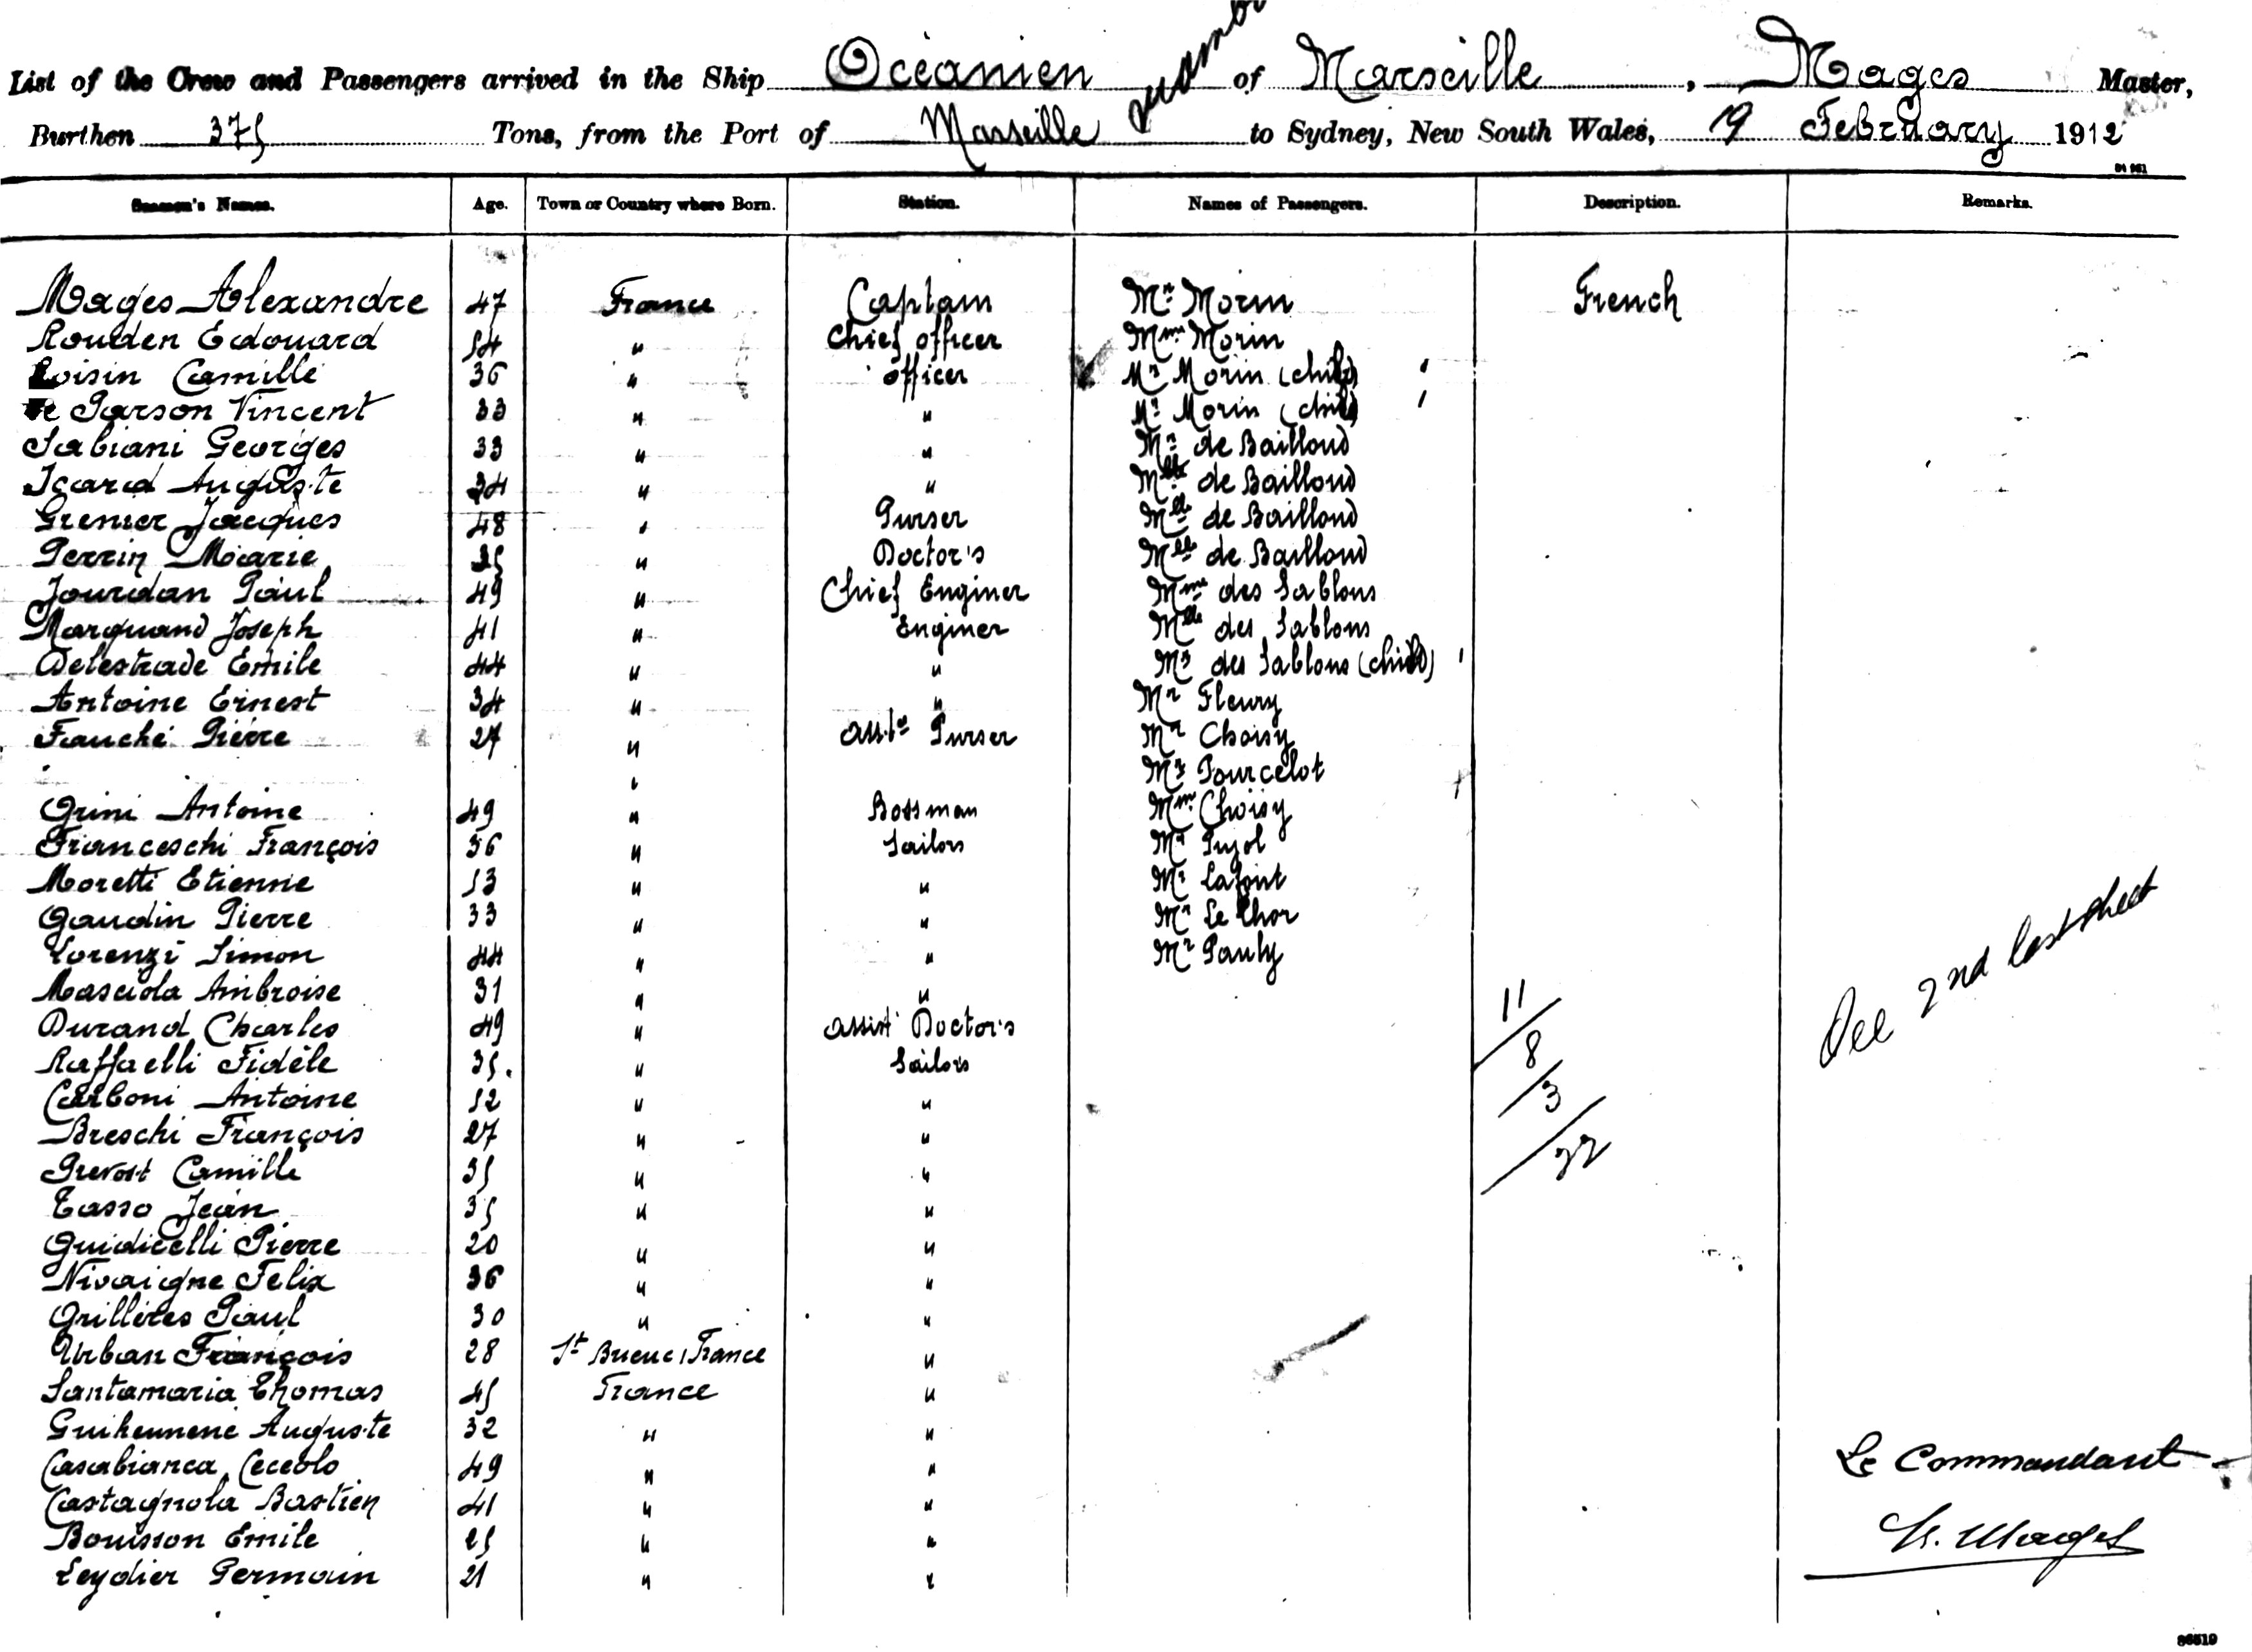 List of the Crew and Passengers arrived in the Ship Océanien of Marseille, Mages Master,
Burthen 375 Tons, from the Port of Marseille to Sydney, New South Wales, 19 February 1912
Seamen's Names. Age. Town or Country where Born. Station. Names of Passengers. Description. Remarks.
Mages Alexandre 47 France Captain Mr Morin French
Rouden Edouard 54 " Chief officer Mme Morin
Loisin Camille 36 " officer Mr Morin (child)
Le Parson Vincent 33 " " Mr Morin (child)
Fabiani Georges 33 " " Mr de Bailloud
Icard Auguste 34 " " Mlle de Bailloud
Grenier Jacques 48 " Purser Mlle de Bailloud
Perrin Marie 35 " Doctor's Mlle de Bailloud
Jourdan Paul 49 " Chief Enginer Mme des Sablons
Marquand Joseph 41 " Enginer Mlle des Sablons
Delestrade Emile 44 " " Mr des Sablons (child)
Antoine Ernest 34 " " Mr Fleury
Fauché Pierre 27 " Purser Mr Choisy
" Mr Pourcelot
Grini Antoine 49 " Bossman Mme Choisy
Franceschi François 36 " Sailors Mr Pujol
Moretti Etienne 53 " " Mr Lafont
Gaudin Pierre 33 " " Mr Le Thor
Lorenzi Simon 44 " " Mr Pauly
Masciola Ambroise 31 " "
Durand Charles 49 " assist Doctor's
Raffaelli Fidèle 35. " Sailors
Carboni Antoine 52 " "
Breschi François 27 " "
Prevost Camille 35 " "
Tasso Jean 35 " "
Guidicelli Pierre 20 " "
Nivaigne Felix 36 " "
Grillères Paul 30 " "
Urban François 28 St Brieuc, France "
Santamaria Thomas 45 France "
Guiheunene Auguste 32 " "
Casabianca Ceceolo 49 " "
Castagnola Bastien 41 " "
Bouisson Emile 25 " "
Leydier Germain 21 " "
11
8
3
22
See 2nd last sheet
Le Commandant
A. Mages
86519